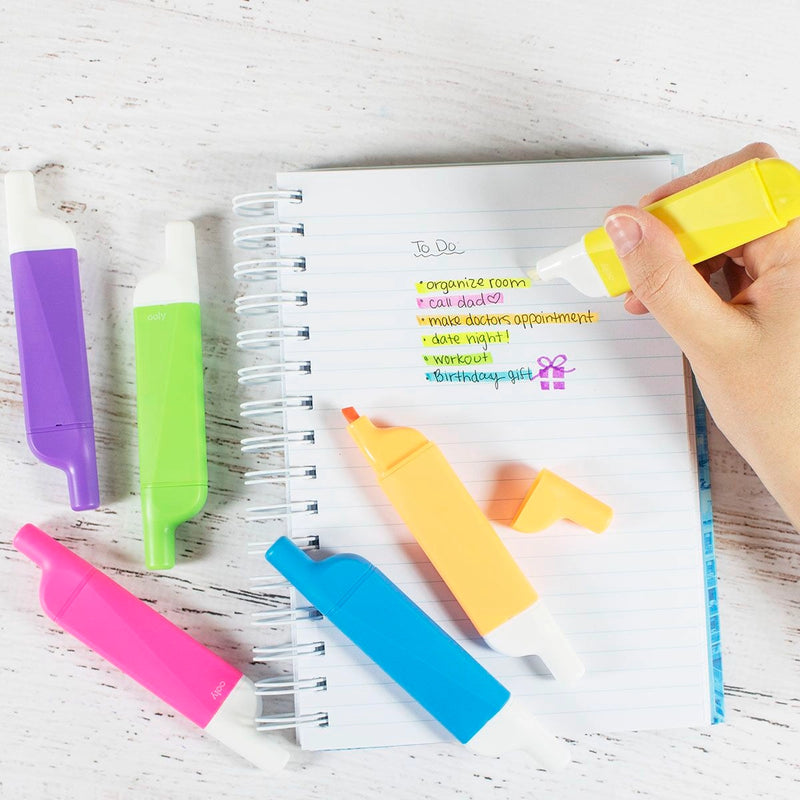 To Do
• organize room
• call dad♡
• make doctors appointment
• date night!
• workout
• Birthday gift
ooly
ooly